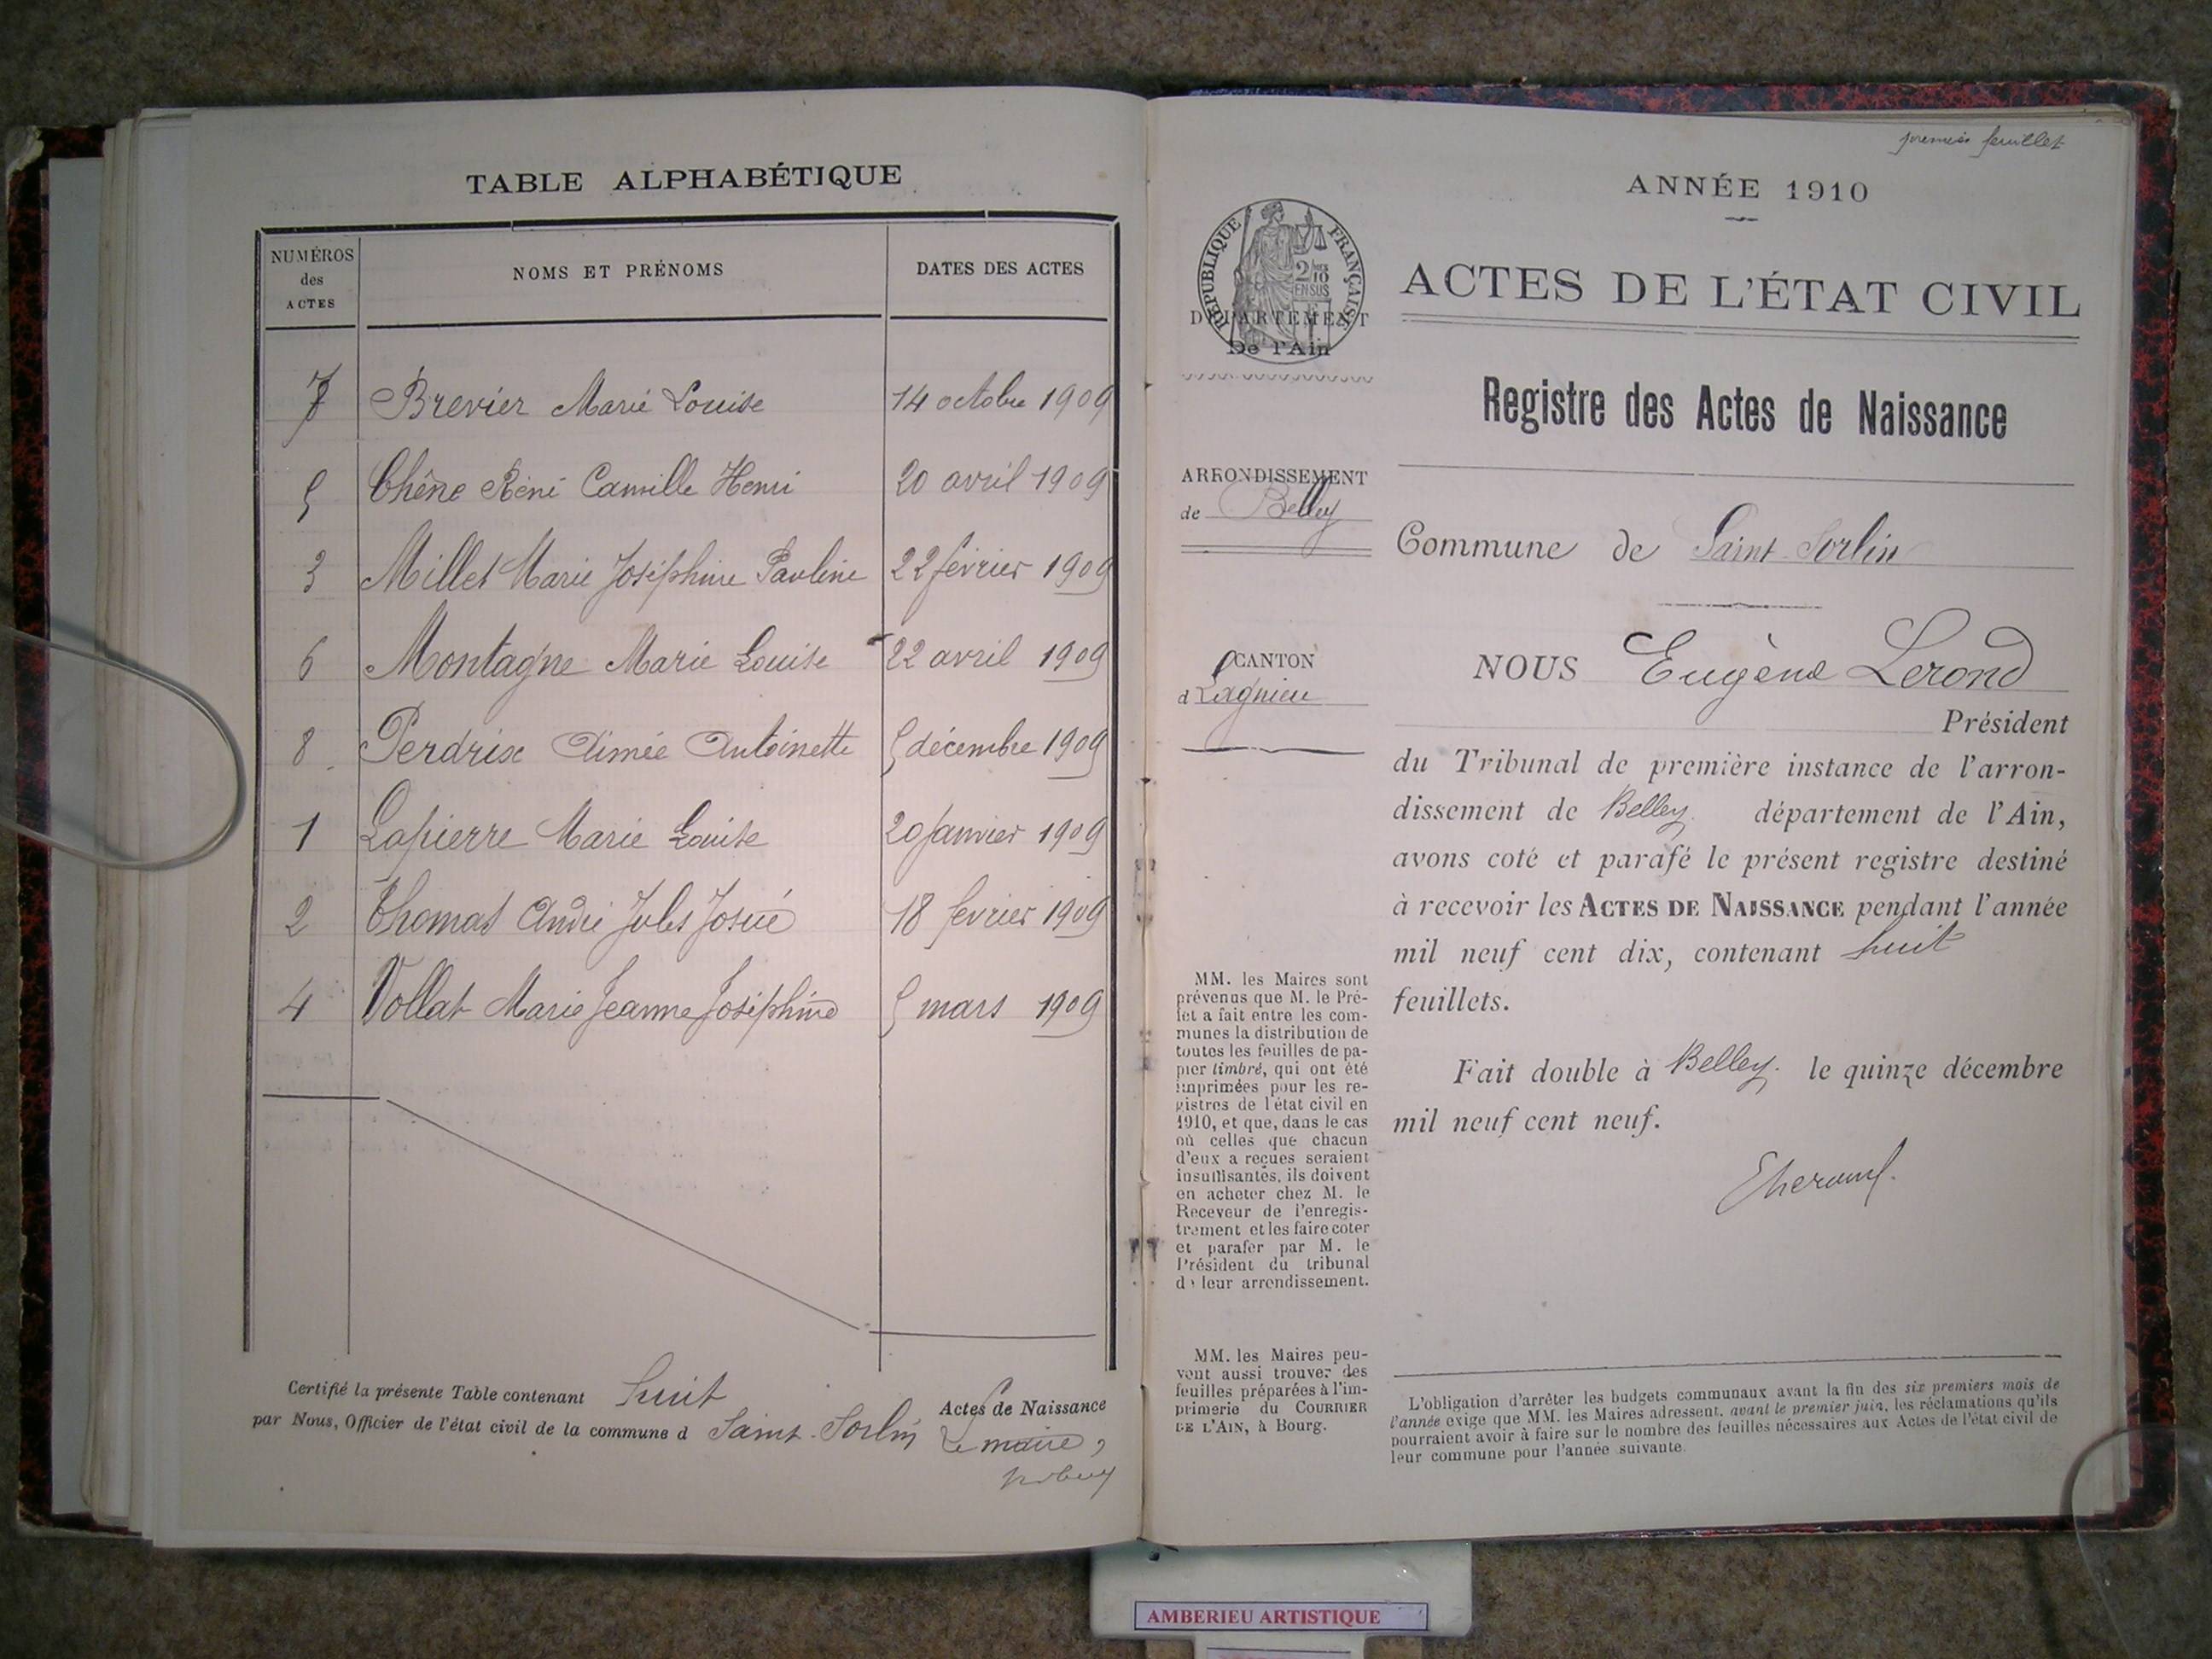 TABLE ALPHABÉTIQUE
NUMÉROS
des
ACTES
NOMS ET PRÉNOMS
DATES DES ACTES
7 Brevier Marie Louise 14 octobre 1909
5 Chêne Réné Camille Henri 20 avril 1909
3 Millet Marie Joséphine Pauline 22 février 1909
6 Montagne Marie Louise 22 avril 1909
8 Perdrix Aimée Antoinette 5 décembre 1909
1 Lapierre Marie Louise 20 janvier 1909
2 Thomas André Jules Josué 18 février 1909
4 Vollat Marie Jeanne Joséphine 5 mars 1909
Certifié la présente Table contenant huit Actes de Naissance
par Nous, Officier de l'état civil de la commune d Saint-Sorlin
Le maire,
premier feuillet
ANNÉE 1910
RÉPUBLIQUE FRANÇAISE
2/10
EN SUS
DÉPARTEMENT
De l'Ain
ACTES DE L'ÉTAT CIVIL
Registre des Actes de Naissance
ARRONDISSEMENT
de Belley
Commune de Saint-Sorlin
CANTON
d Lagnieu
NOUS Eugène Lerond
Président
du Tribunal de première instance de l'arron-
dissement de Belley. département de l'Ain,
avons coté et parafé le présent registre destiné
à recevoir les ACTES DE NAISSANCE pendant l'année
mil neuf cent dix, contenant huit
feuillets.
Fait double à Belley. le quinze décembre
mil neuf cent neuf.
MM. les Maires sont
prévenus que M. le Pré-
fet a fait entre les com-
munes la distribution de
toutes les feuilles de pa-
pier timbré, qui ont été
imprimées pour les re-
gistres de l'état civil en
1910, et que, dans le cas
où celles que chacun
d'eux a reçues seraient
insuffisantes, ils doivent
en acheter chez M. le
Receveur de l'enregis-
trement et les faire coter
et parafer par M. le
Président du tribunal
de leur arrondissement.
MM. les Maires peu-
vent aussi trouver des
feuilles préparées à l'im-
primerie du COURRIER
DE L'AIN, à Bourg.
L'obligation d'arrêter les budgets communaux avant la fin des six premiers mois de
l'année exige que MM. les Maires adressent, avant le premier juin, les réclamations qu'ils
pourraient avoir à faire sur le nombre des feuilles nécessaires aux Actes de l'état civil de
leur commune pour l'année suivante.
AMBERIEU ARTISTIQUE